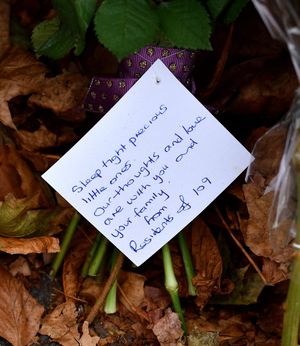 Sleep tight precious
little ones.
Our thoughts and love
are with you and
your family.
from
Residents of 109